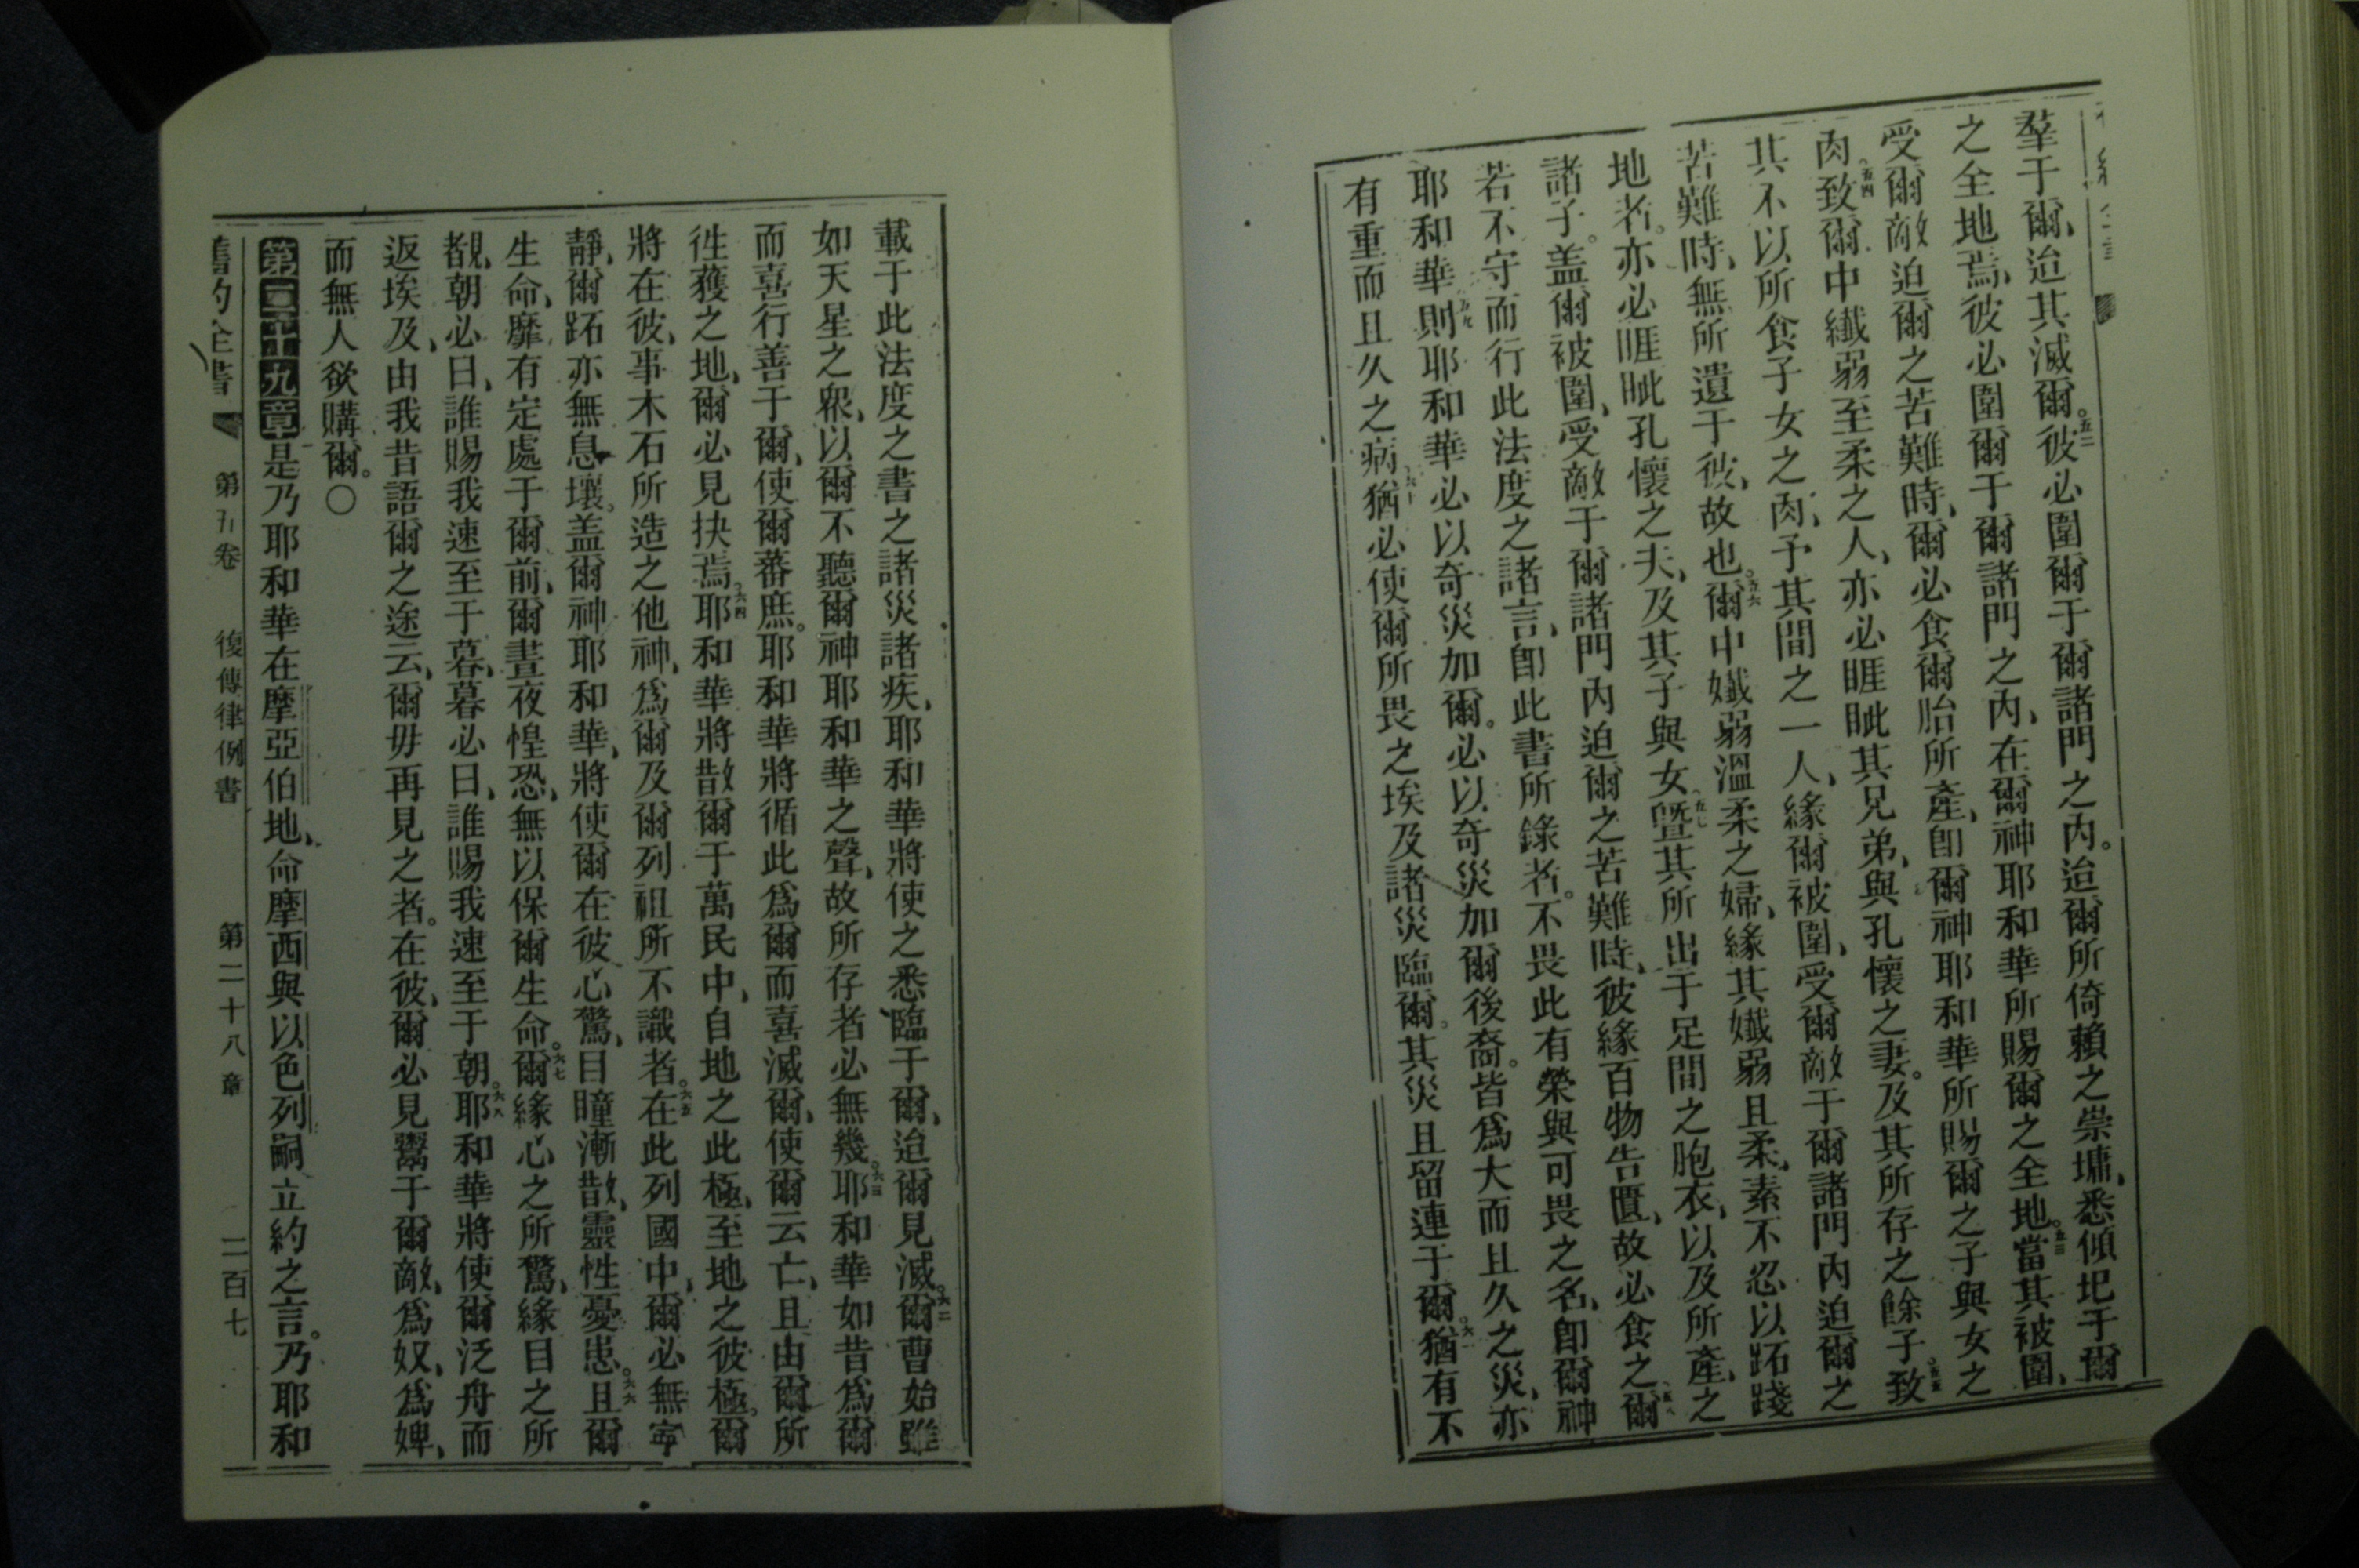 羣于爾、迨其滅爾。五二彼必圍爾于爾諸門之內。迨爾所倚賴之崇墉、悉傾圮于爾
之全地焉、彼必圍爾于爾諸門之內、在爾神耶和華所賜爾之全地。五三當其被圍、
受爾敵迫爾之苦難時、爾必食爾胎所產、卽爾神耶和華所賜爾之子與女之
肉。五四致爾中纖弱至柔之人、亦必睚眦其兄弟、與孔懷之妻。及其所存之餘子。五五致
其不以所食子女之肉、予其間之一人、緣爾被圍、受爾敵于爾諸門內迫爾之
苦難時、無所遺于彼、故也。五六爾中孅弱溫柔之婦、緣其孅弱且柔、素不忍以跖踐
地者。亦必睚眦孔懷之夫、及其子與女。五七曁其所出于足間之胞衣、以及所產、之
諸子。盖爾被圍、受敵于爾諸門內迫爾之苦難時、彼緣百物告匱、故必食之。五八爾
若不守而行此法度之諸言、卽此書所錄者。不畏此有榮與可畏之名、卽爾神
耶和華。五九則耶和華必以奇災加爾。必以奇災加爾後裔。皆爲大而且久之災、亦
有重而且久之病。六十猶必使爾所畏之埃及諸災臨爾。其災且留連于爾。六一猶有不
載于此法度之書之諸災諸疾、耶和華將使之悉臨于爾、迨爾見滅。六二爾曹始雖
如天星之衆、以爾不聽爾神耶和華之聲、故所存者必無幾。六三耶和華如昔爲爾
而喜行善于爾、使爾蕃庶。耶和華將循此爲爾而喜滅爾、使爾云亡、且由爾所
徃蒦之地、爾必見抉焉。六四耶和華將散爾于萬民中、自地之此極、至地之彼極。爾
將在彼、事木石所造之他神、爲爾及爾列祖所不識者。六五在此列國中、爾必無寜
靜、爾跖亦無息壤。盖爾神耶和華、將使爾在彼心驚、目瞳漸散、靈性憂患。六六且爾
生命、靡有定處于爾前、爾晝夜惶恐、無以保爾生命。六七爾緣心之所驚、緣目之所
覩、朝必曰、誰賜我速至于暮、暮必曰、誰賜我速至于朝。六八耶和華將使爾泛舟而
返埃及、由我昔語爾之途云、爾毋再見之者。在彼、爾必見鬻于爾敵、爲奴、爲婢、
而無人欲購爾。〇
第二十九章是乃耶和華在摩亞伯地、命摩西與以色列嗣立約之言。乃耶和
舊約全書 第五卷 復傳律例書 第二十八章 二百七